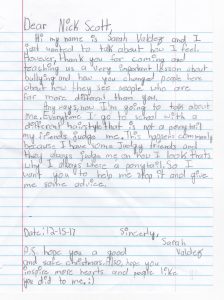 Dear Nick Scott,
Hi my name is Sarah Valdez and I
just wanted to talk about how I feel.
However, thank you for coming and
teaching us a very important lesson about
bullying and how you changed people here
about how they see people who are
far more different than you.
Anyways, now I'm going to talk about
me. Everytime I go to school with a
different hairstyle that is not a ponytail
my friends judge me. This happens commonly
because I have some Judgy friends and
they always judge me on how I look that's
why I always wear a ponytail. So I
want you to help me stop it and give
me some advice.
Date: 12-15-17 Sincerly,
Sarah
Valdez
P.S. hope you a good
and safe christmas. Also, hope you
inspire more hearts and people like
you did to me :)